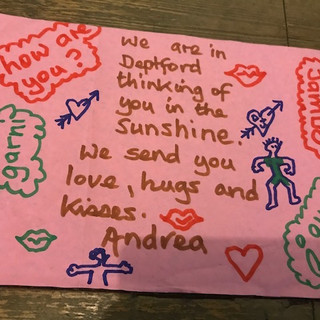 how are
you?
We are in
Deptford
thinking of
you in the
Sunshine.
We send you
love, hugs and
kisses.
Andrea
garni